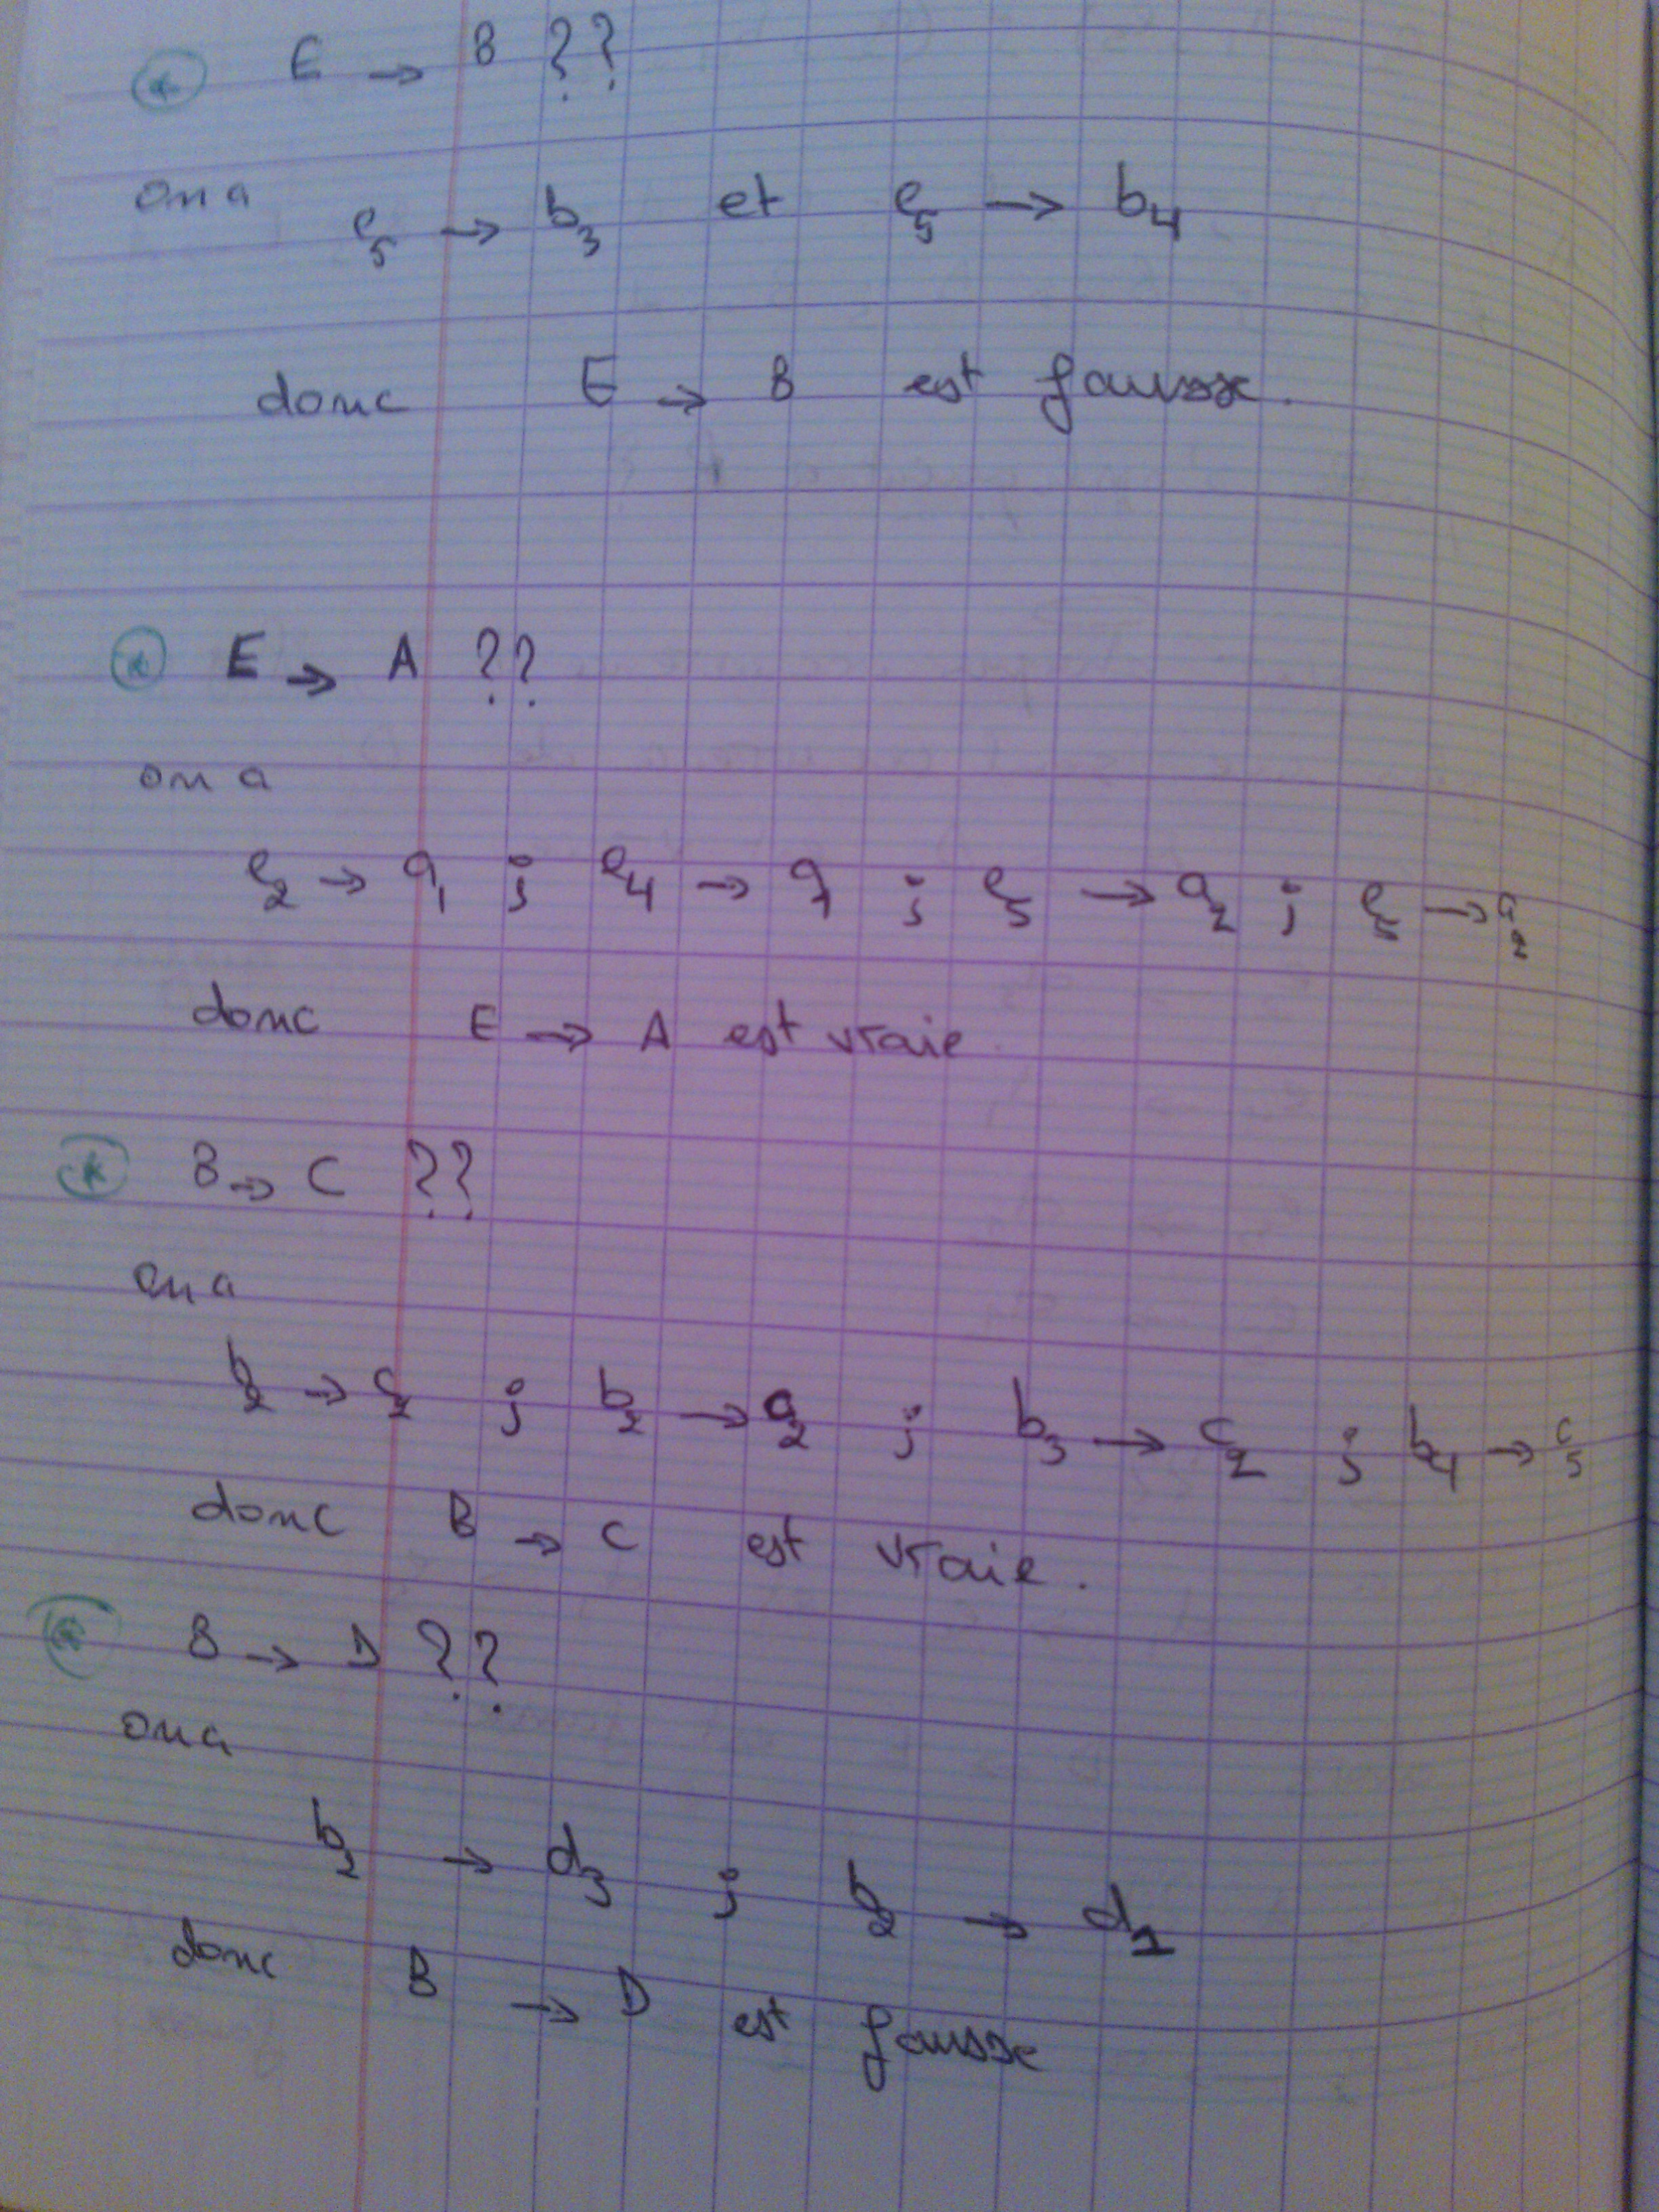 * E → B ??
on a e5 → b3 et e5 → b4
donc E → B est fausse.
* E → A ??
on a
e2 → a1 ; e4 → a1 ; e5 → a2 ; e5 → a2
donc E → A est vraie
* B → C ??
on a
b2 → c2 ; b2 → c2 ; b3 → c2 ; b4 → c5
donc B → C est vraie.
* B → D ??
on a
b2 → d3 ; b2 → d1
donc B → D est fausse